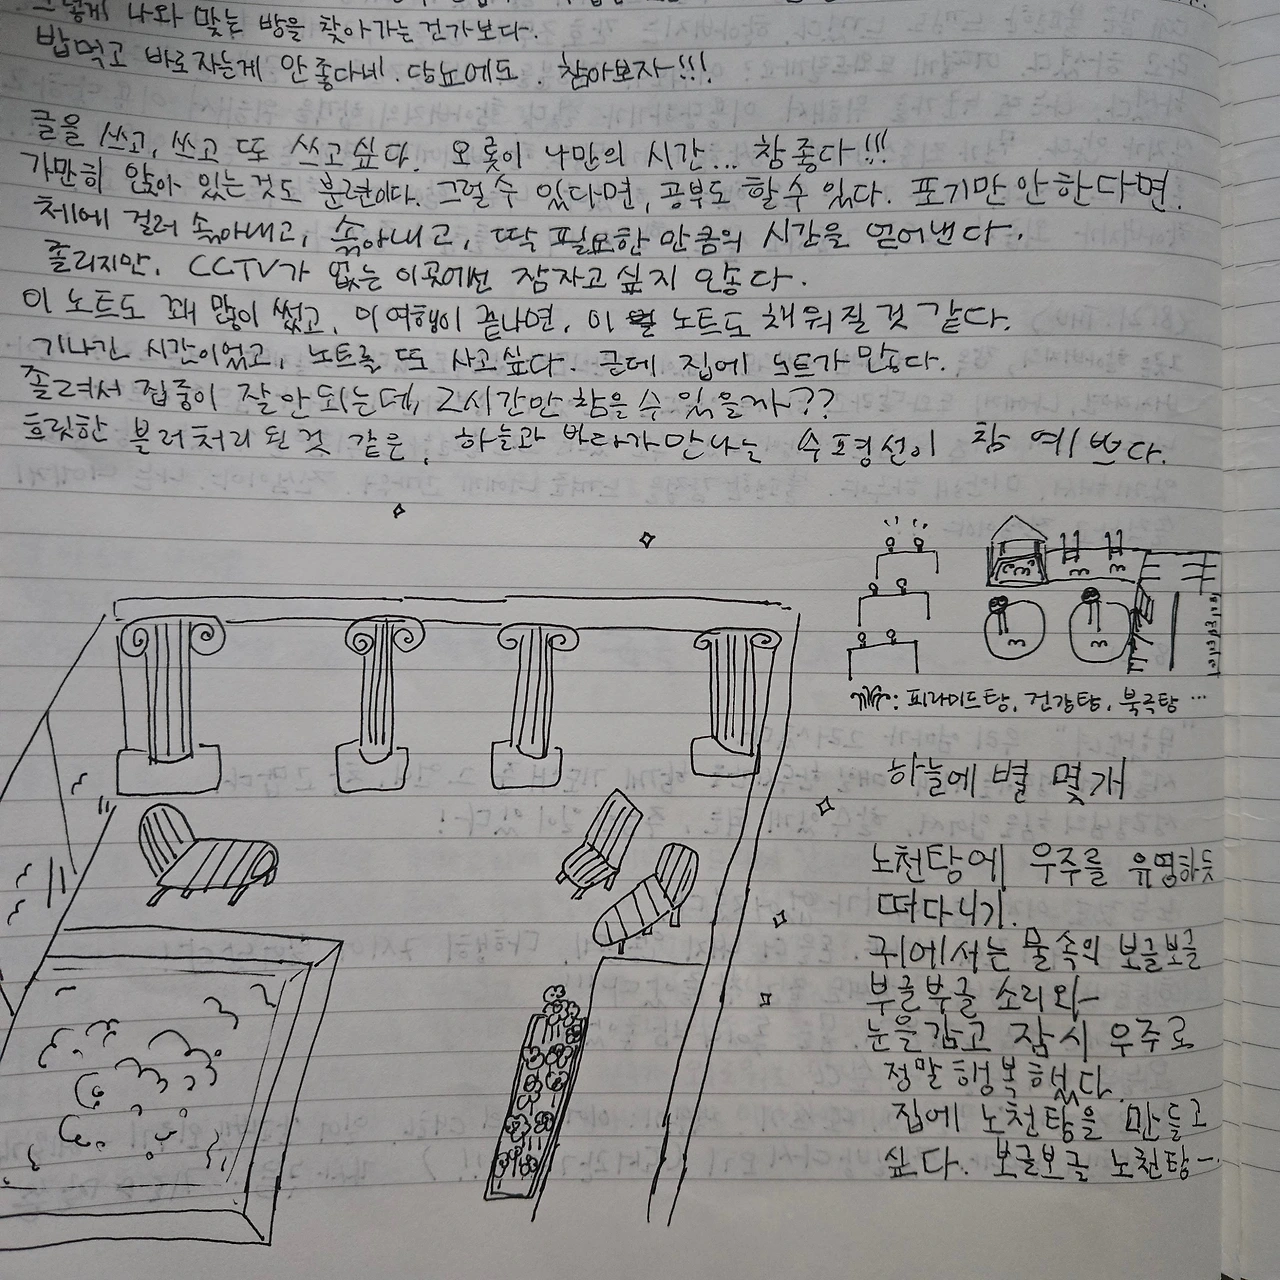 그렇게 나와 맞는 방을 찾아가는 건가보다.
밥먹고 바로자는게 안좋다네. 당뇨에도. 참아보자!!!
글을 쓰고, 쓰고 또 쓰고싶다. 오롯이 나만의 시간... 참좋다!!!
가만히 앉아 있는것도 훈련이다. 그럴수 있다면, 공부도 할수있다. 포기만 안한다면.
체에 걸러 솎아내고, 솎아내고, 딱 필요한 만큼의 시간을 얻어낸다.
졸리지만, CCTV가 없는 이곳에선 잠자고 싶지 않다.
이 노트도 꽤 많이 썼고, 이여행이 끝나면, 이 노트도 채워질것 같다.
기나긴 시간이었고, 노트를 또 사고싶다. 근데 집에 노트가 많다.
졸려서 집중이 잘안되는데, 2시간만 참을수 있을까??
흐릿한 블러처리된것 같은, 하늘과 바다가만나는 수평선이 참 예쁘다.
: 피라미드탕, 건강탕, 북극탕 ...
하늘에 별 몇개
노천탕에 우주를 유영하듯
떠다니기.
귀에서는 물속의 보글보글
부글부글 소리와-
눈을감고 잠시 우주로
정말행복했다.
집에 노천탕을 만들고
싶다. 보글보글 노천탕-.